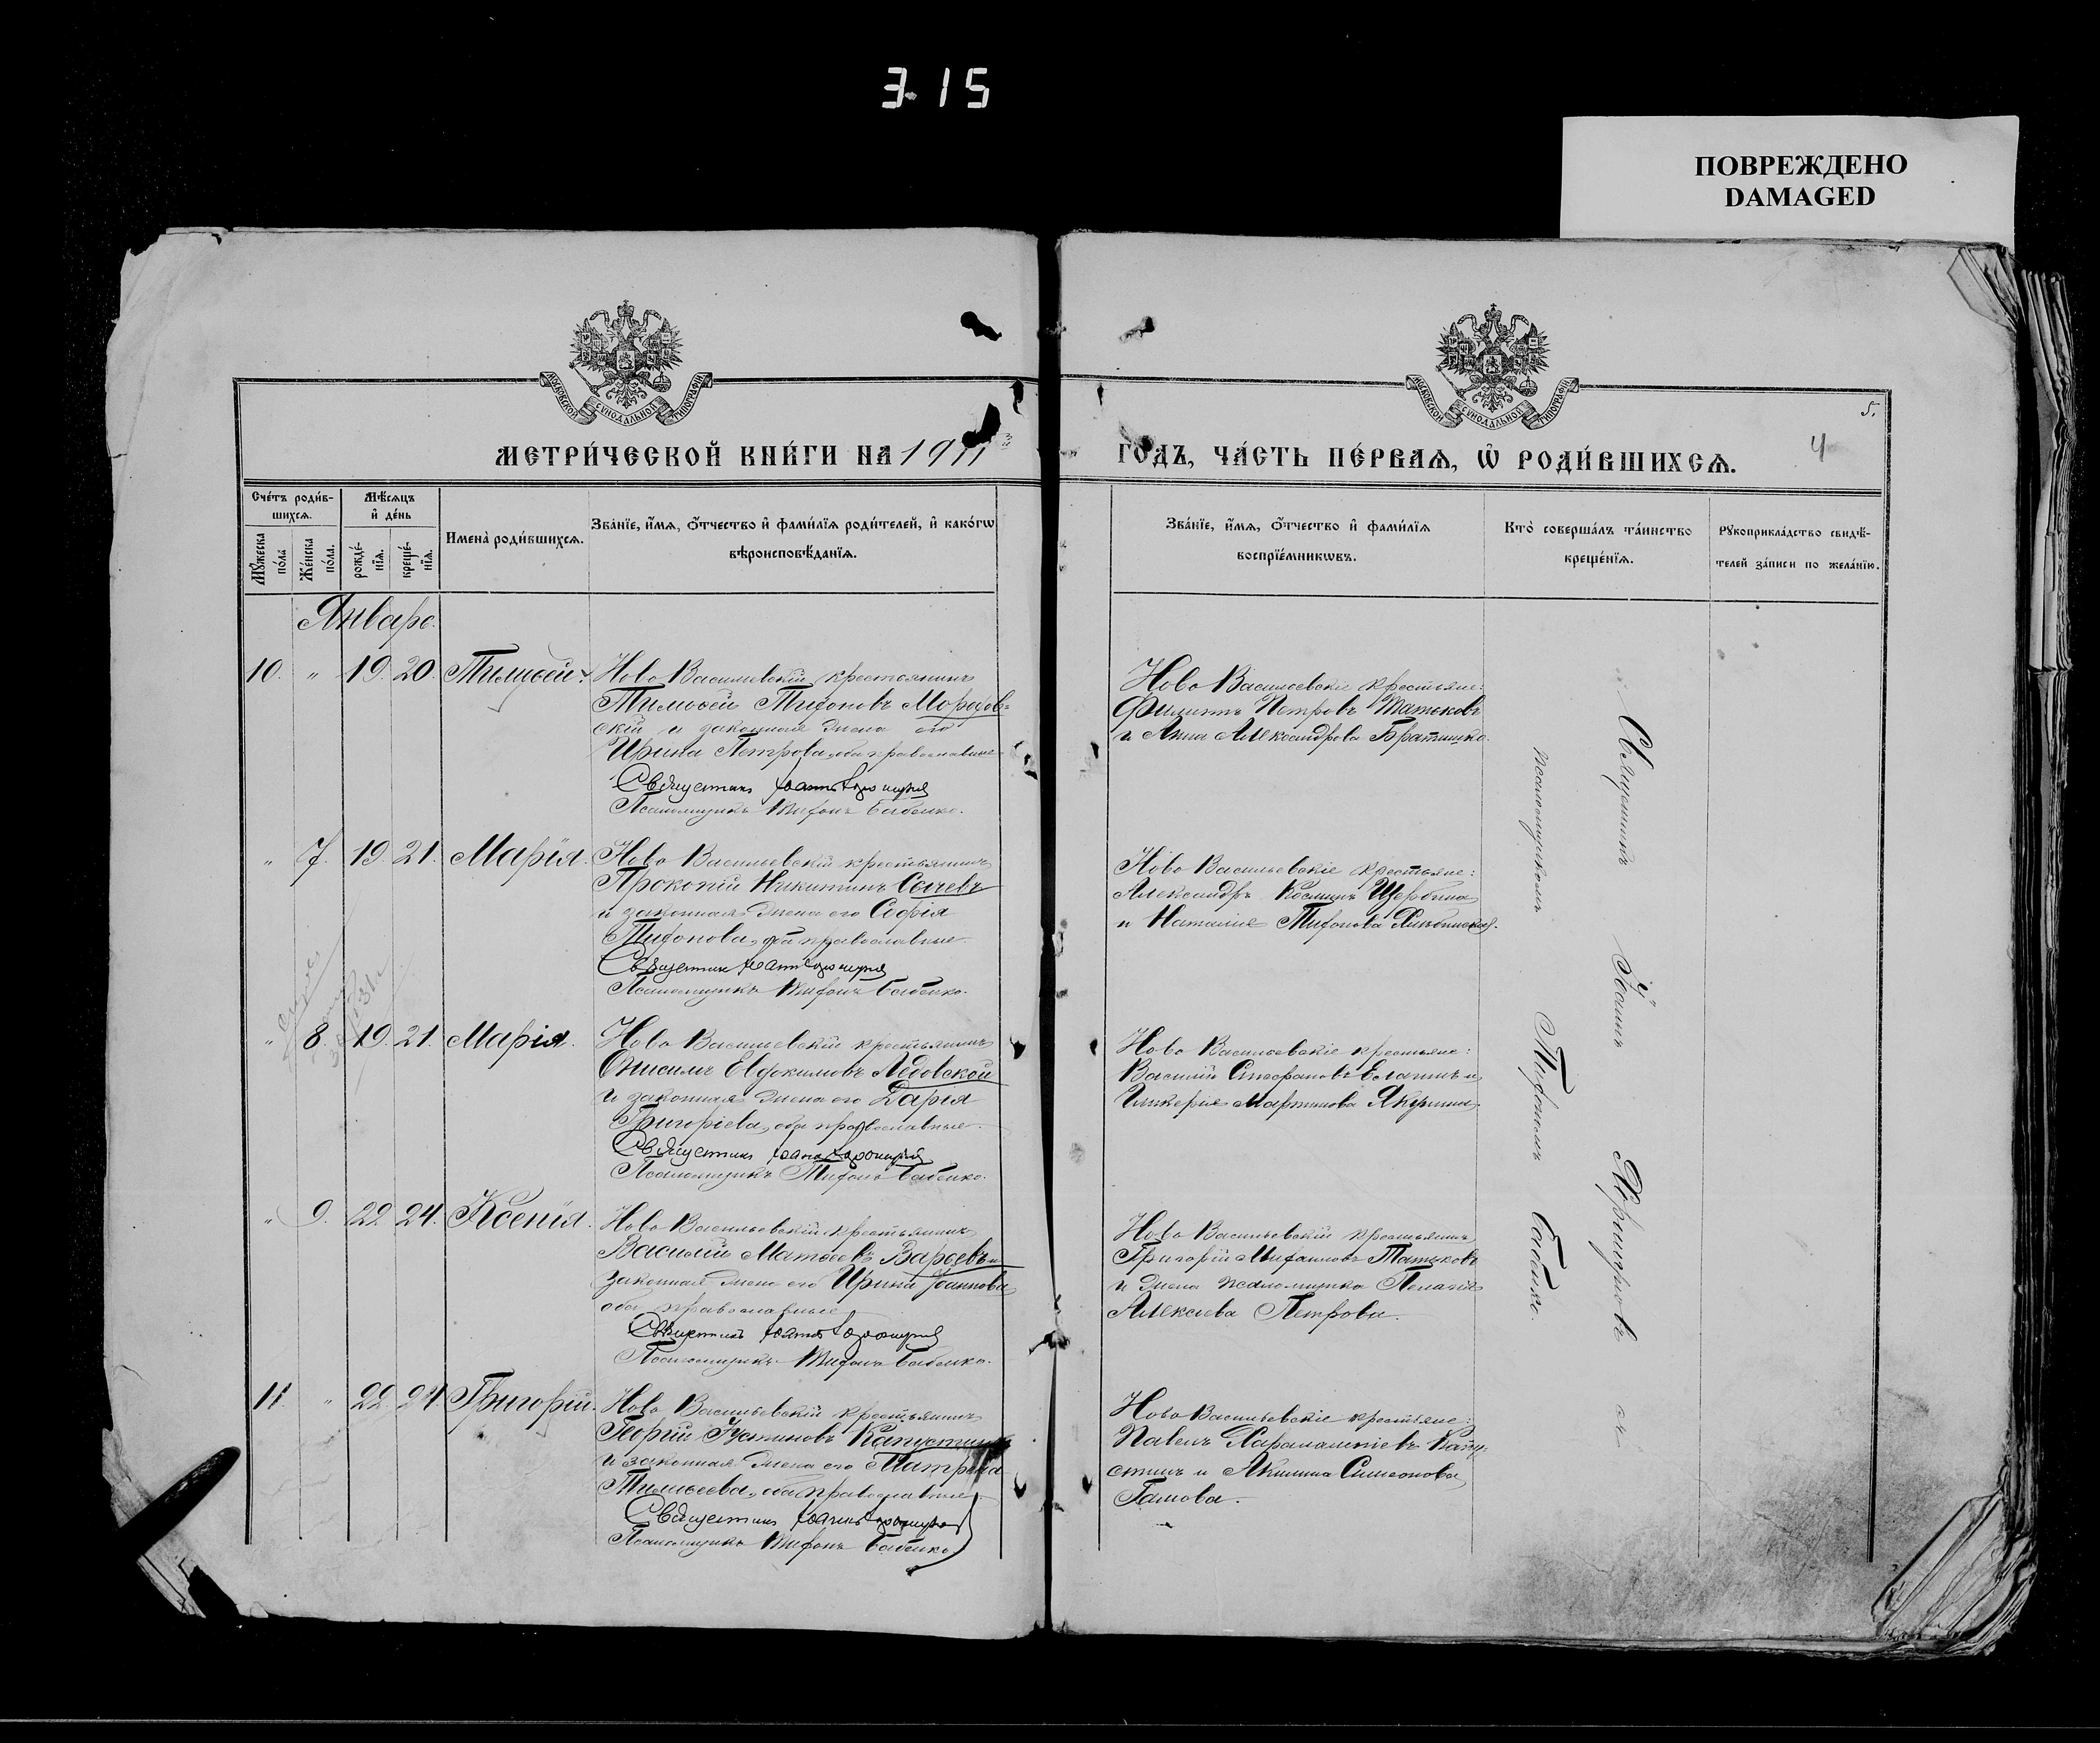 3-15
ПОВРЕЖДЕНО
DAMAGED
МОСКОВСКОЙ СѴНОДАЛЬНОЙ ТИПОГРАФІИ
МОСКОВСКОЙ СѴНОДАЛЬНОЙ ТИПОГРАФІИ
5.
4
МЕТРИ́ЧЕСКОЙ КНИ́ГИ НА 1911
ГОДЪ, ЧА́СТЬ ПЕ́РВАѦ, Ѡ҆ РОДИ́ВШИХСѦ.
Сче́тъ роди́в-
шихсѧ.
Мꙋ́жеска по́ла.
Же́нска по́ла.
Мѣ́сѧцъ
и҆ де́нь
рожде́-
нїѧ.
креще́-
нїѧ.
И҆мена̀ роди́вшихсѧ.
Зва́нїе, и҆́мѧ, ѻ҆́тчество и҆ фами́лїѧ роди́телей, и҆ како́гѡ
вѣроисповѣ́данїѧ.
Зва́нїе, и҆́мѧ, ѻ҆́тчество и҆ фами́лїѧ
воспрїе́мникѡвъ.
Кто̀ соверша́лъ та́инство
креще́нїѧ.
Рꙋкоприкла́дство свидѣ́-
телей за́писи по жела́нїю.
Январь.
10. " 19. 20. Тимоѳей.
Ново Васильевскій крестьянинъ
Тимоѳей Тифоновъ Морозов-
скій и законная жена его
Ирина Петрова, оба православные
Священникъ Іоаннъ
Псаломщикъ Тифонъ Бабенко.
Ново Васильевскіе крестьяне:
Филиппъ Петровъ Татьковъ
и Анна Александрова Братишко.
" 7. 19. 21. Марія.
Ново Васильевскій крестьянинъ
Прокопій Никитинъ Сычевъ
и законная жена его Софія
Тифонова, оба православные
Священникъ Іоаннъ
Псаломщикъ Тифонъ Бабенко.
Ново Васильевскіе крестьяне:
Александръ Косминъ Щербина
и Наталія Тифонова
" 8. 19. 21. Марія.
Ново Васильевскій крестьянинъ
Онисимъ Евдокимовъ Ледовской
и законная жена его Дарія
Григоріева, оба православные
Священникъ Іоаннъ
Псаломщикъ Тифонъ Бабенко.
Ново Васильевскіе крестьяне:
Василій Стефановъ Елагинъ и
Гликерія Мартинова Якушина
" 9. 22. 24. Ксенія.
Ново Васильевскій крестьянинъ
Василій Матѳеевъ и
законная жена его Ирина Іоаннова
оба православные
Священникъ Іоаннъ
Псаломщикъ Тифонъ Бабенко.
Ново Васильевскій крестьянинъ
Григорій Татьковъ
и жена псаломщика Пелагія
Алексіева Петрова.
11. " 22. 24. Григорій.
Ново Васильевскій крестьянинъ
Георгій Іустиновъ Капустинъ
и законная жена его Матрона
Тимоѳеева, оба православные
Священникъ Іоаннъ
Псаломщикъ Тифонъ Бабенко.
Ново Васильевскіе крестьяне:
Павелъ Харалампіевъ Капу-
стинъ и Акилина Симеонова
Гамова.
Священникъ Іоаннъ съ
псаломщикомъ Тифономъ Бабенко.